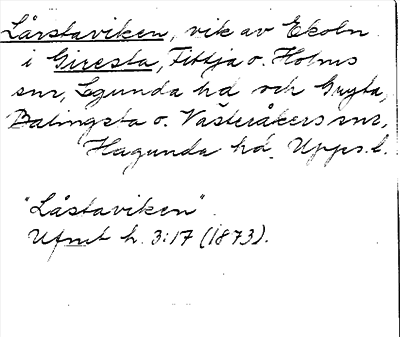 Lårstaviken, vik av Ekoln
i Giresta, Fittja o. Holms
snr, Lgunda hd och Gryta,
Balingsta o. Västeråkers snr,
Hagunda hd, Upps. l.
"Låstaviken".
Ufmt h. 3:17 (1873).